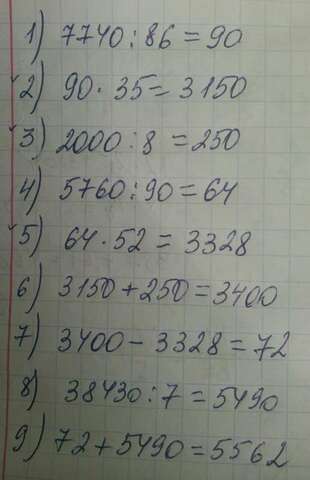 1) 7740 : 86 = 90
2) 90 · 35 = 3150
3) 2000 : 8 = 250
4) 5760 : 90 = 64
5) 64 · 52 = 3328
6) 3150 + 250 = 3400
7) 3400 - 3328 = 72
8) 38430 : 7 = 5490
9) 72 + 5490 = 5562